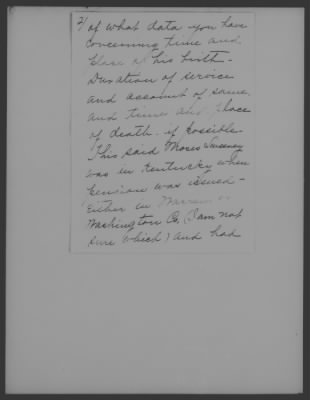 2/ of what data you have
concerning time and
place of his birth -
Duration of service
and account of same,
and time and place
of death - if possible.
This said Moses Sweeney
was in Kentucky when
pension was issued -
Either in Warren or
Washington Co. (I am not
sure which) and had